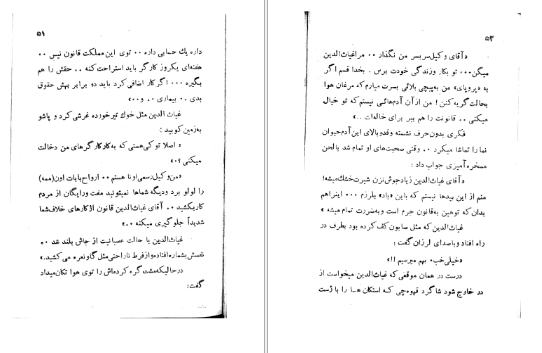 ۵۱
داره یك حسابی داره ۰۰ توی این مملکت قانون نیس ۰۰
هفته‌ای یکروز کارگر باید استراحت کنه ۰۰ حقش را هم
بگیره ۰۰۰ اگر کار اضافی کرد باید دو برابر بهش حقوق
بدی ۰۰ بیماری ۰۰ و۰۰»
غیاث‌الدین مثل خوك تیر خورده غرشی کرد و پاشو
به‌زمین کوبید :
« اصلا تو کی هستی که به کار کارگرهای من دخالت
میکنی ؟۰»
«من وکیل رسمی اونا هستم ۰۰ ارواح بابات اون (ممه)
را لولو برد و دیگه شماها نمیتونید مفت و رایگان از مردم
کار بکشید ۰۰ آقای غیاث‌الدین قانون از کارهای خلاف شما
شدیداً جلوگیری میکنه ۰۰»
غیاث‌الدین با حالت عصبانیت از جاش بلند شد ۰۰
نفسش بشماره افتاده و از فرط ناراحتی مثل گاو نعره می‌کشید.
در حالیکه مشت گره کرده‌اش را توی هوا تکان میداد
گفت:
۵۳
«آقای وکیل سر بسر من نگذار ۰۰ مرا غیاث‌الدین
میگن ۰۰۰ تو بکار و زندگی خودت برس . بخدا قسم اگر
به «پروپای» من به‌پیچی بلائی بسرت میارم که مرغان هوا
بحالت گریه کنن! من از آن آدم‌هائی نیستم که تو خیال
میکنی ۰۰ قانونت را هم ببر برای خاله‌ات ۰۰»
فکری بدون حرف نشسته و قد و بالای این آدم حیوان
نما را تماشا میکرد ۰۰ وقتی صحبت‌های او تمام شد با لحن
مسخره آمیزی جواب داد :
«آقای غیاث‌الدین زیاد جوش نزن شیرت خشك میشه!
منم از این بیدها نیستم که باین «باد» بلرزم ۰۰۰ اینراهم
بدان که توهین به‌قانون جرم است و به‌ضررت تمام میشه »
غیاث‌الدین که مثل صابون کف کرده بود بطرف در
راه افتاد و با صدای لرزان گفت:
«خیلی خب» بهم میرسیم !!»
درست در همان موقعی که غیاث‌الدین میخواست از
در خارج شود شاگرد قهوه‌چی که استکان هـا را با ژست